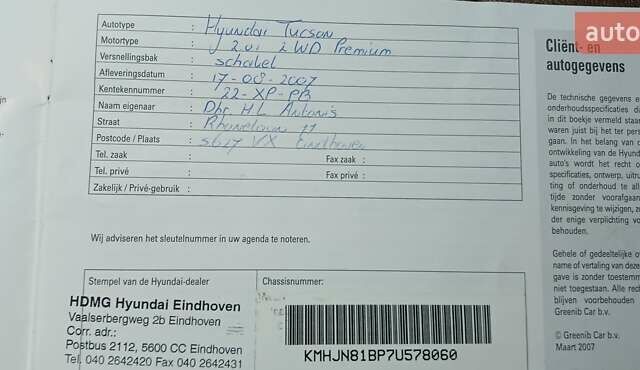 auto
Autotype : Hyundai Tucson
Motortype : 2.0i 2WD Premium
Versnellingsbak : schakel
Afleveringsdatum : 17-08-2007
Kentekennummer : 22-XP-PB
Naam eigenaar : Dhr. H L Antonis
Straat : 17
Postcode / Plaats : 5627 VX Eindhoven
Tel. zaak : Fax zaak :
Tel. privé : Fax privé :
Zakelijk / Privé-gebruik :
Wij adviseren het sleutelnummer in uw agenda te noteren.
Stempel van de Hyundai-dealer
HDMG Hyundai Eindhoven
Vaalserbergweg 2b Eindhoven
Corr. adr.:
Postbus 2112, 5600 CC Eindhoven
Tel. 040 2642420 Fax 040 2642431
Chassisnummer:
KMHJN81BP7U578060
Cliënt- en
autogegevens
De technische gegevens e
onderhoudsspecificaties di
in dit boekje vermeld staa
waren juist bij het ter per
gaan. In het belang van c
ontwikkeling van de Hyund
auto's wordt het recht o
specificaties, ontwerp, uitru
ting of onderhoud te all
tijde zonder voorafgaan
kennisgeving te wijzigen, zo
der enige verplichting vo
behouden.
Gehele of gedeeltelijke o
name of vertaling van deze
gave is zonder toestemm
niet toegestaan. Alle rech
blijven voorbehouden
Greenib Car b.v.
© Greenib Car b.v.
Maart 2007